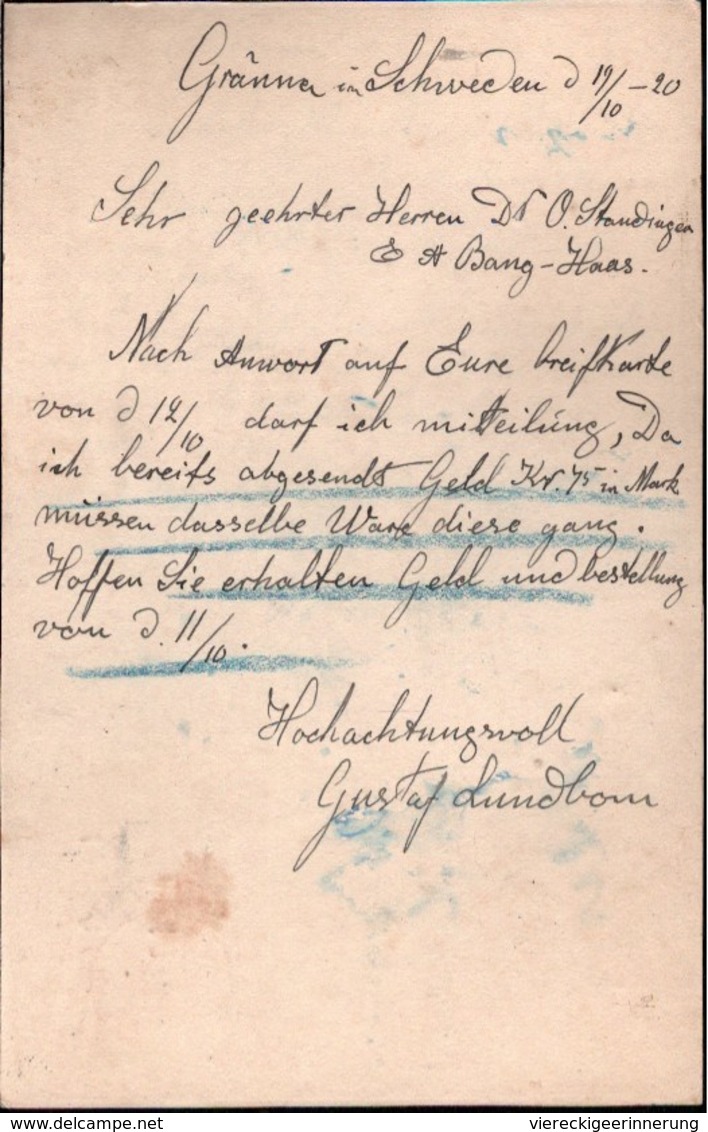 Gränna in Schweden d 19/10 – 20
Sehr geehrter Herren Dr O. Staudinger
& A Bang-Haas.
Nach Anwort auf Eure breifkarte
von d 12/10 darf ich mitteilung, Da
ich bereits abgesendt Geld Kr. 75 in Mark
müssen dasselbe Ware diese gang.
Hoffen Sie erhalten Geld und bestellung
von d. 11/10.
Hochachtungsvoll
Gustaf Lundbom
www.delcampe.net
viereckigeerinnerung